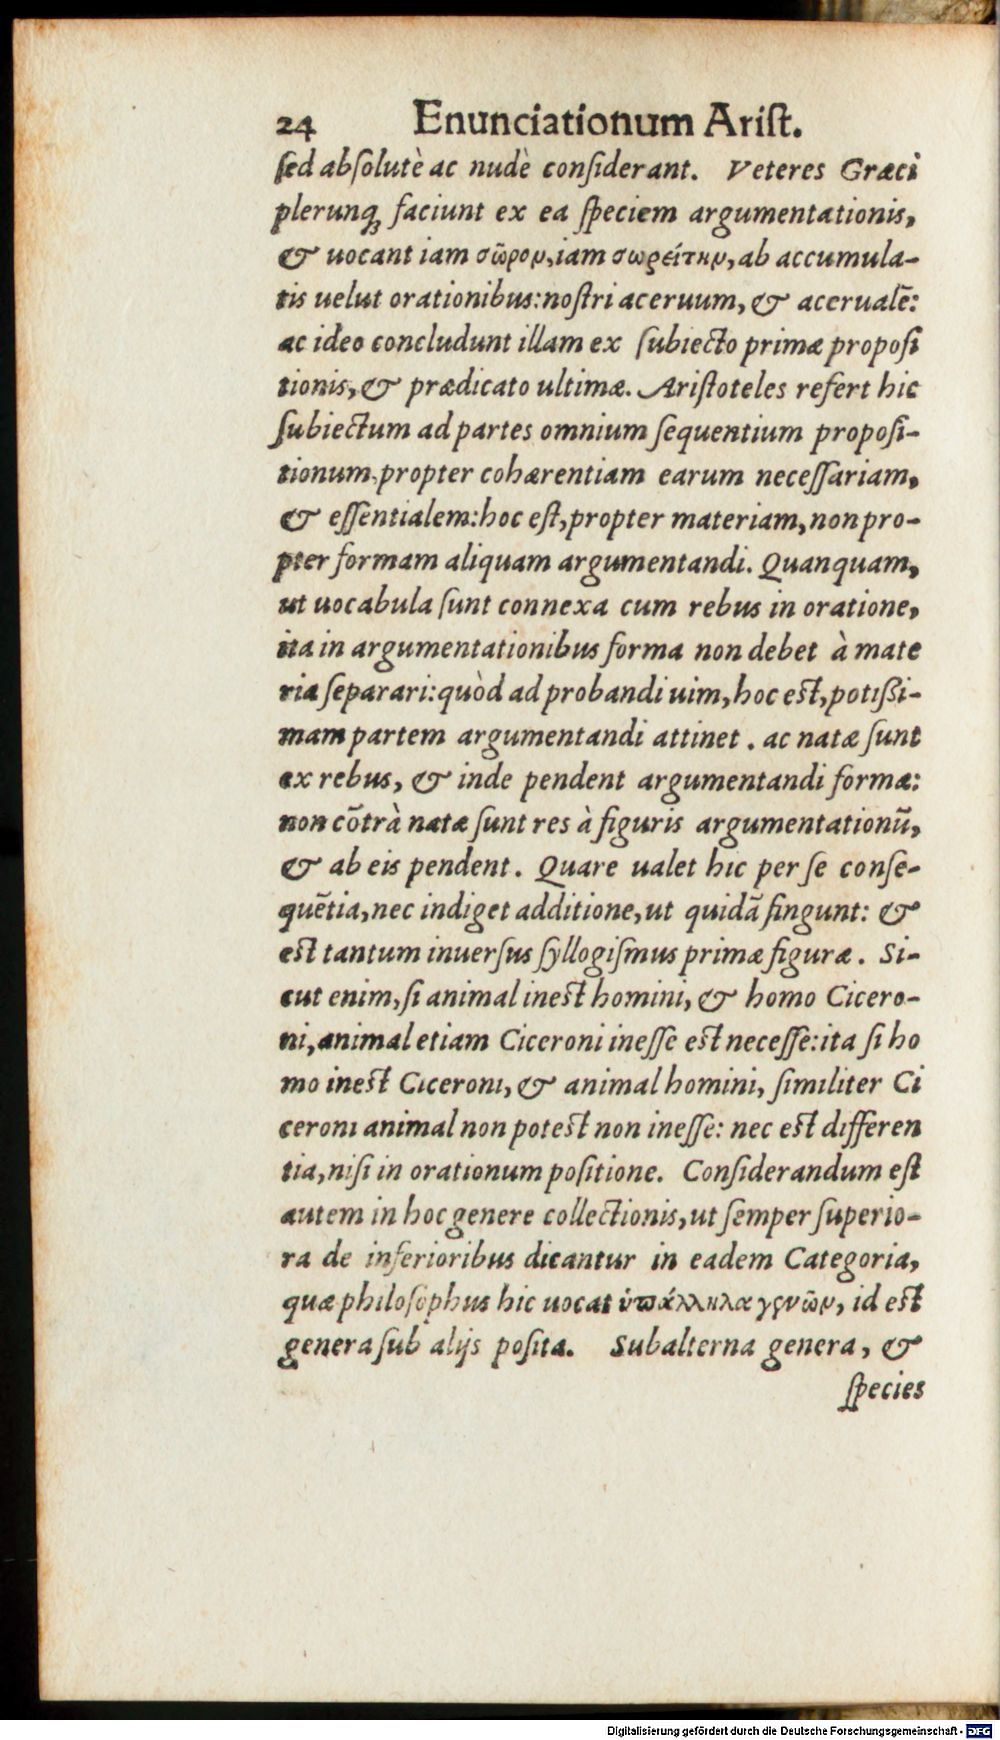 24 Enunciationum Ariſt.
ſed abſolutè ac nudè conſiderant. Veteres Græci
plerunq; faciunt ex ea ſpeciem argumentationis,
& uocant iam σῶρον, iam σωρείτην, ab accumula-
tis uelut orationibus: noſtri aceruum, & acerualē:
ac ideo concludunt illam ex ſubiecto primæ propoſi
tionis, & prædicato ultimæ. Ariſtoteles refert hic
ſubiectum ad partes omnium ſequentium propoſi-
tionum, propter cohærentiam earum neceſſariam,
& eſſentialem: hoc eſt, propter materiam, non pro-
pter formam aliquam argumentandi. Quanquam,
ut uocabula ſunt connexa cum rebus in oratione,
ita in argumentationibus forma non debet à mate
ria ſeparari: quòd ad probandi uim, hoc eſt, potißi-
mam partem argumentandi attinet. ac natæ ſunt
ex rebus, & inde pendent argumentandi formæ:
non cōtrà natæ ſunt res à figuris argumentationū,
& ab eis pendent. Quare ualet hic per ſe conſe-
quētia, nec indiget additione, ut quidā fingunt: &
eſt tantum inuerſus ſyllogiſmus primæ figuræ. Si-
cut enim, ſi animal ineſt homini, & homo Cicero-
ni, animal etiam Ciceroni ineſſe eſt neceſſe: ita ſi ho
mo ineſt Ciceroni, & animal homini, ſimiliter Ci
ceroni animal non poteſt non ineſſe: nec eſt differen
tia, niſi in orationum poſitione. Conſiderandum eſt
autem in hoc genere collectionis, ut ſemper ſuperio-
ra de inferioribus dicantur in eadem Categoria,
quæ philoſophus hic uocat ὑπάλληλα γενῶν, id eſt
genera ſub alijs poſita. Subalterna genera, &
ſpecies
Digitalisierung gefördert durch die Deutsche Forschungsgemeinschaft - DFG